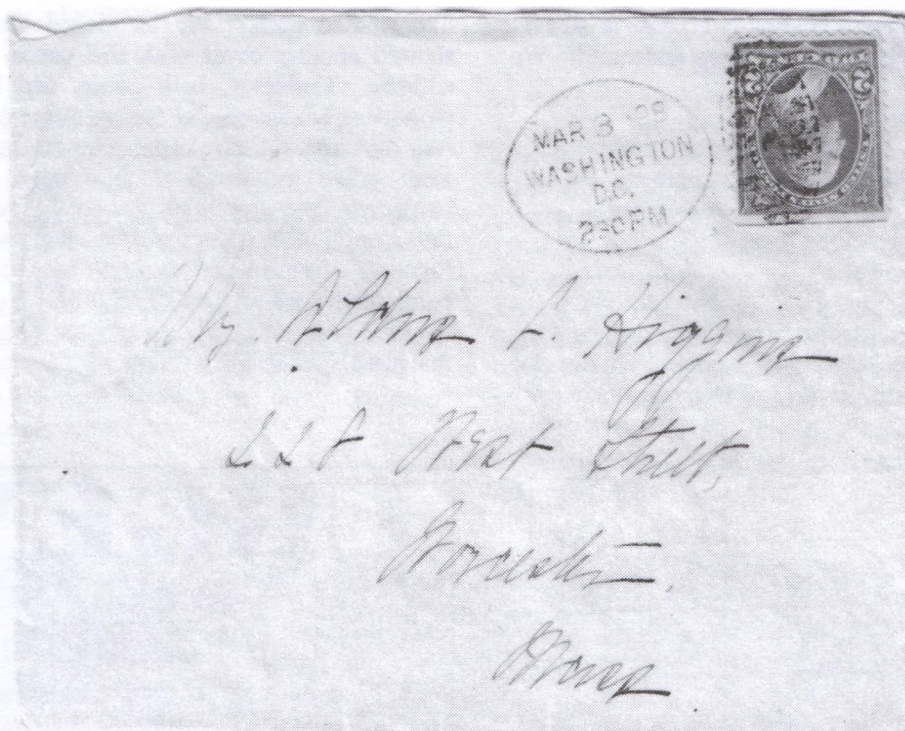 MAR 3 98
WASHINGTON
D.C.
230 PM
2 2
Mr. Aldus C. Higgins
228 West Street,
Worcester,
Mass